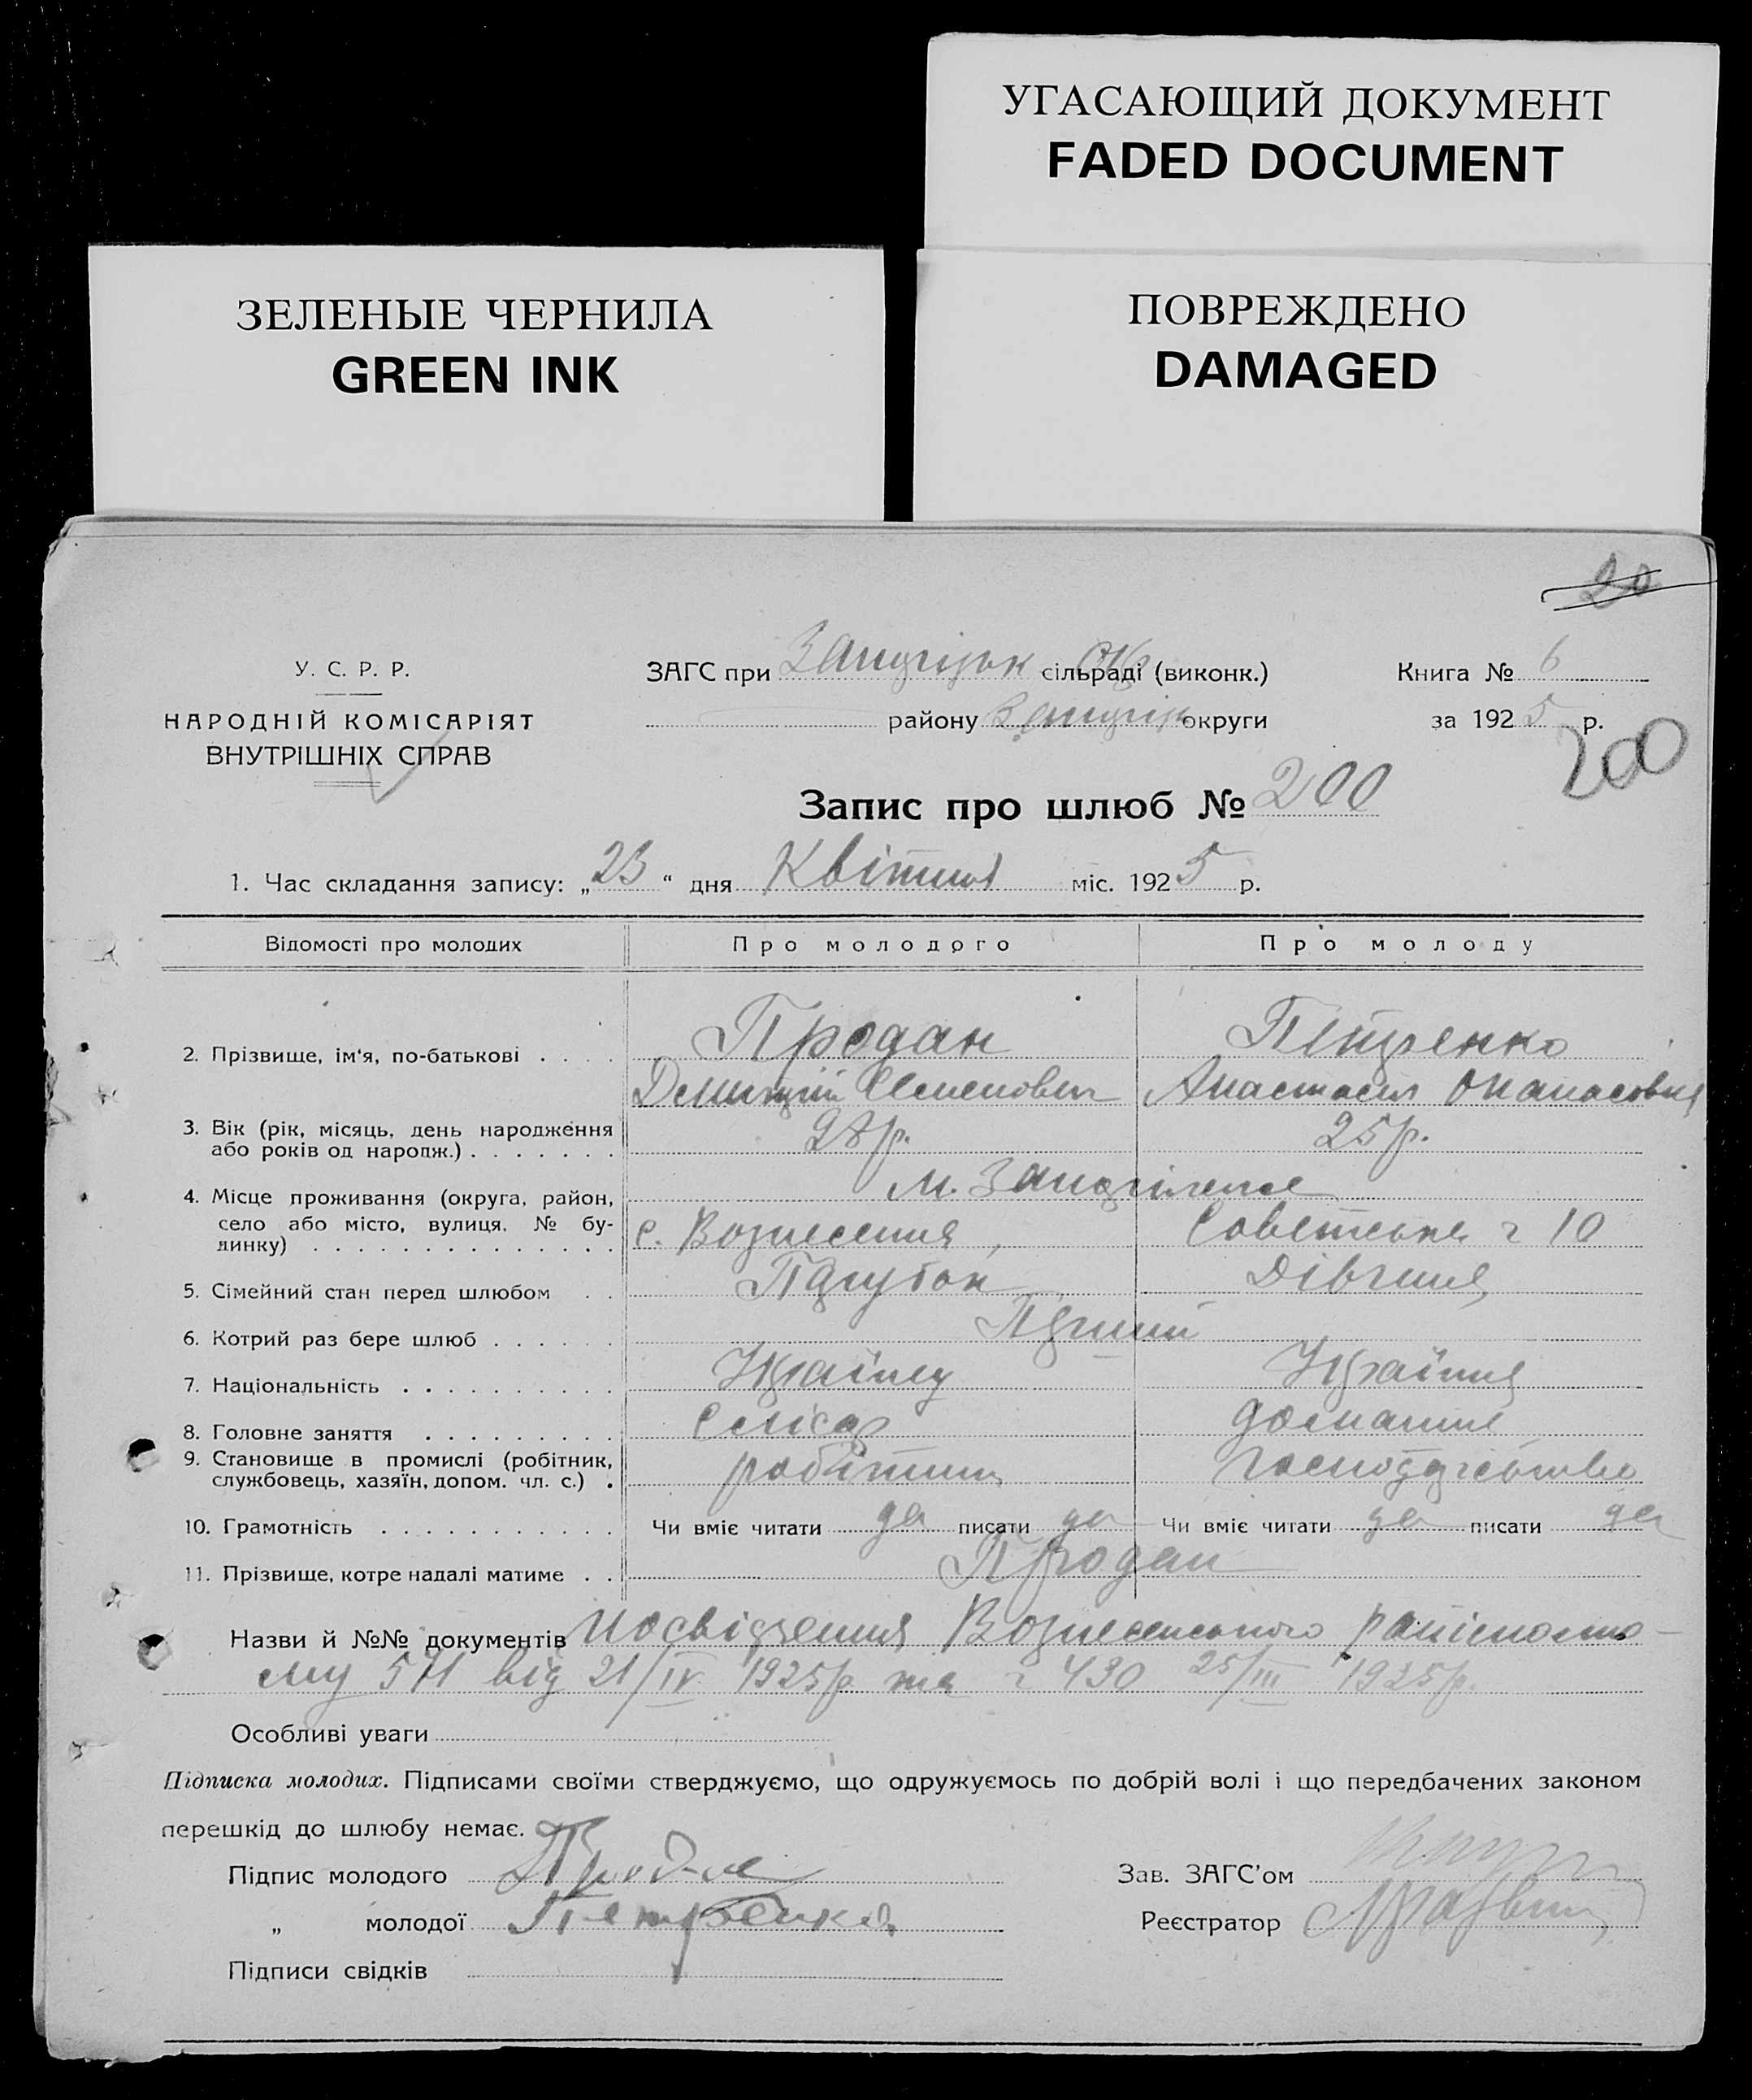 УГАСАЮЩИЙ ДОКУМЕНТ
FADED DOCUMENT
ЗЕЛЕНЫЕ ЧЕРНИЛА
GREEN INK
ПОВРЕЖДЕНО
DAMAGED
20
У. С. Р. Р.
НАРОДНІЙ КОМІСАРІЯТ
ВНУТРІШНІХ СПРАВ
ЗАГС при сільраді (виконк.)
району округи
Книга № 6
за 1925 р.
200
Запис про шлюб № 200
1. Час складання запису: „23“ дня Квітня міс. 1925 р.
Відомості про молодих Про молодого Про молоду
2. Прізвище, ім'я, по-батькові . . . . Продан Петренко
Семенович Анастасія Опанасовна
3. Вік (рік, місяць, день народження
або років од народж.) . . . . . . . 28р. 25р.
4. Місце проживання (округа, район, м.
село або місто, вулиця, № бу-
динку) . . . . . . . . . . . . . . с. Вознесення, Советська 10
5. Сімейний стан перед шлюбом . . Парубок Дівчина
6. Котрий раз бере шлюб . . . . . . Перший
7. Національність . . . . . . . . . . Українец
8. Головне заняття . . . . . . . . . Слюсар домашне
9. Становище в промислі (робітник,
службовець, хазяїн, допом. чл. с.) . робітник господарство
10. Грамотність . . . . . . . . . . . Чи вміє читати да писати да Чи вміє читати да писати да
11. Прізвище, котре надалі матиме . . Продан
Назви й №№ документів Посвідчення Вознесенського
571 від 21/IV 1925р та 430 25/III 1925р.
Особливі уваги
Підписка молодих. Підписами своїми стверджуємо, що одружуємось по добрій волі і що передбачених законом
перешкід до шлюбу немає.
Підпис молодого
„ молодої Петренко
Підписи свідків
Зав. ЗАГС'ом
Реєстратор